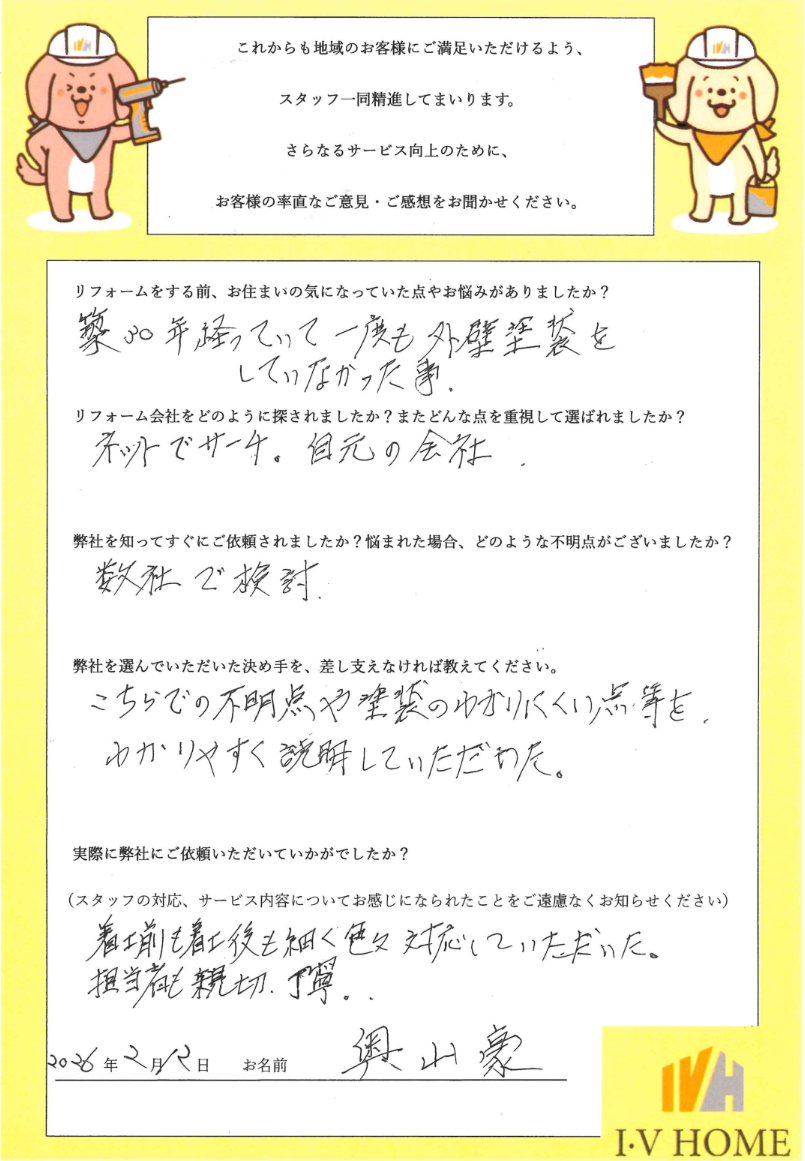 これからも地域のお客様にご満足いただけるよう、
スタッフ一同精進してまいります。
さらなるサービス向上のために、
お客様の率直なご意見・ご感想をお聞かせください。
リフォームをする前、お住まいの気になっていた点やお悩みがありましたか?
築30年経っていて一度も外壁塗装を
していなかった事.
リフォーム会社をどのように探されましたか?またどんな点を重視して選ばれましたか?
ネットでサーチ。自元の会社.
弊社を知ってすぐにご依頼されましたか?悩まれた場合、どのような不明点がございましたか?
数社で検討.
弊社を選んでいただいた決め手を、差し支えなければ教えてください。
こちらでの不明点や塗装のわかりにくい点等を.
わかりやすく説明していただけた。
実際に弊社にご依頼いただいていかがでしたか?
(スタッフの対応、サービス内容についてお感じになられたことをご遠慮なくお知らせください)
着工前も着工後も細く色々対応していただいた。
担当者も親切.丁寧。.
2026年2月12日 お名前 奥山豪
IVH
I・V HOME